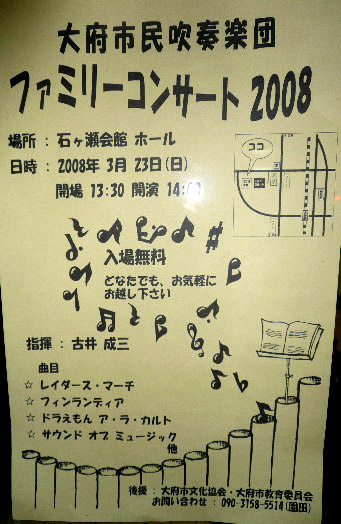 大府市民吹奏楽団
ファミリーコンサート 2008
場所 : 石ヶ瀬会館 ホール
日時 : 2008年 3月 23日(日)
開場 13:30 開演 14:00
ココ
入場無料
どなたでも、お気軽に
お越し下さい
指揮 : 古井 成三
曲目
☆ レイダース・マーチ
☆ フィンランディア
☆ ドラえもん ア・ラ・カルト
☆ サウンド オブ ミュージック
他
後援 : 大府市文化協会・大府市教育委員会
お問い合わせ : 090-3158-5514(園田)